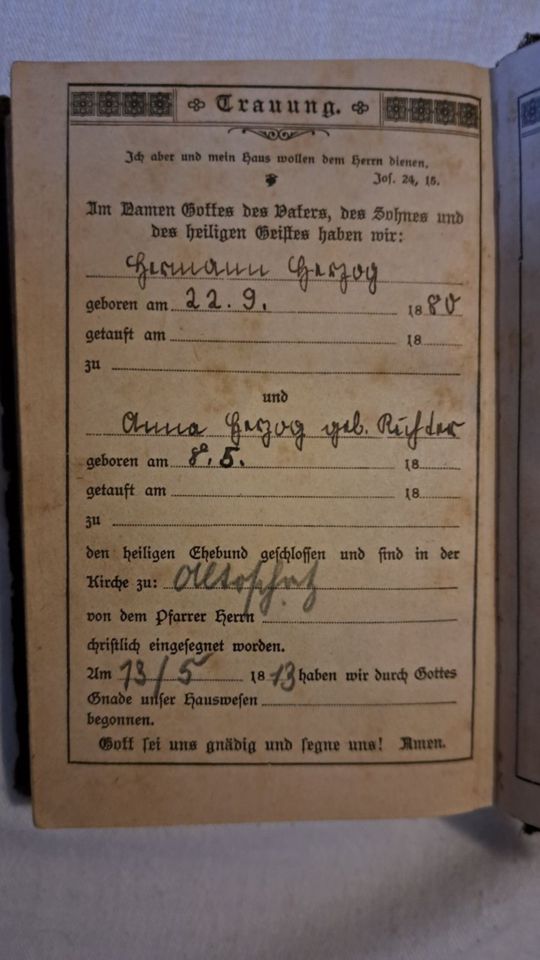 Trauung.
Ich aber und mein Haus wollen dem Herrn dienen.
Jos. 24, 15.
Im Namen Gottes des Vaters, des Sohnes und
des heiligen Geistes haben wir:
Hermann Herzog
geboren am 22. 9. 1880
getauft am 18
zu
und
Anna Herzog geb. Richter
geboren am 8. 5. 18
getauft am 18
zu
den heiligen Ehebund geschlossen und sind in der
Kirche zu:
von dem Pfarrer Herrn
christlich eingesegnet worden.
Am 13/5 1813 haben wir durch Gottes
Gnade unser Hauswesen
begonnen.
Gott sei uns gnädig und segne uns! Amen.